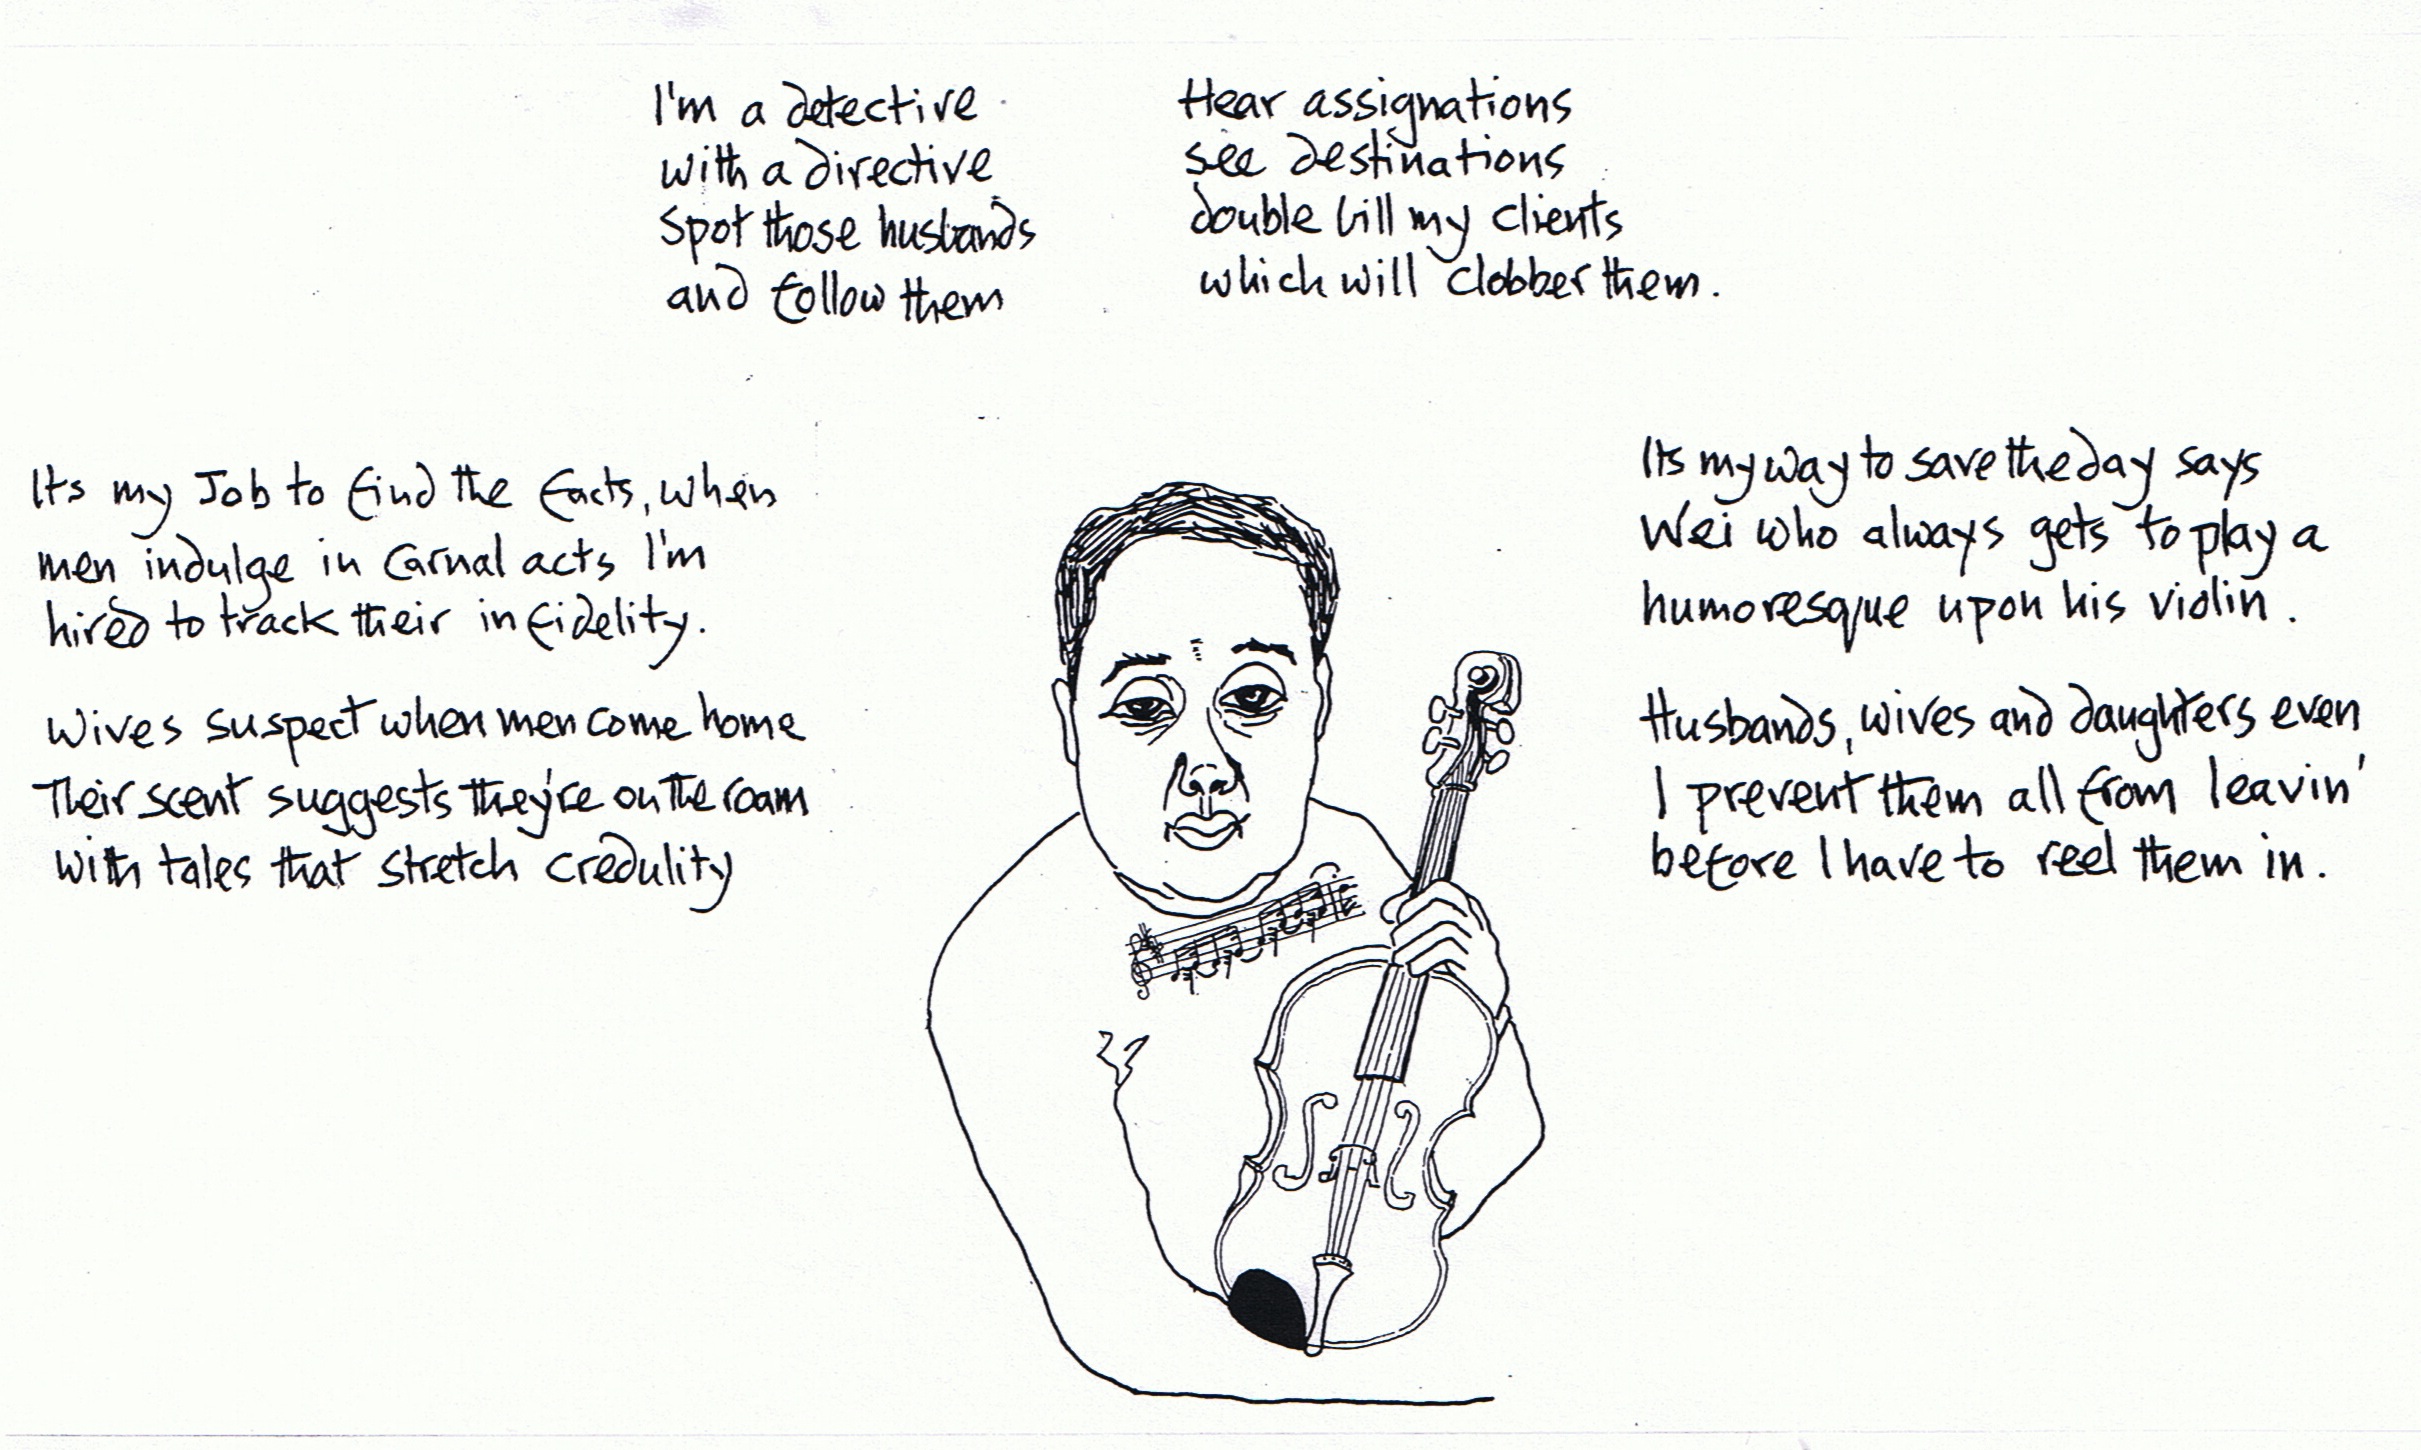 I'm a detective
with a directive
spot those husbands
and follow them
Hear assignations
see destinations
double bill my clients
which will clobber them.
Its my Job to find the facts, when
men indulge in carnal acts I'm
hired to track their infidelity.
Wives suspect when men come home
Their scent suggests they're on the roam
with tales that stretch credulity
Its my way to save the day says
Wei who always gets to play a
humoresque upon his violin.
Husbands, wives and daughters even
I prevent them all from leavin'
before I have to reel them in.